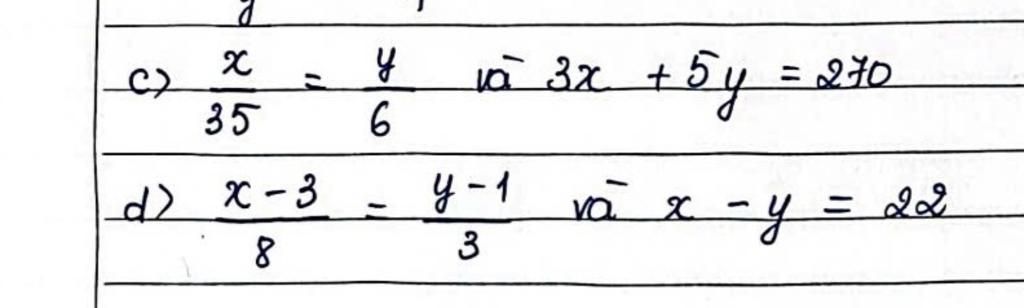 c) x/35 = y/6 và 3x + 5y = 270
d) x - 3/8 = y - 1/3 và x - y = 22